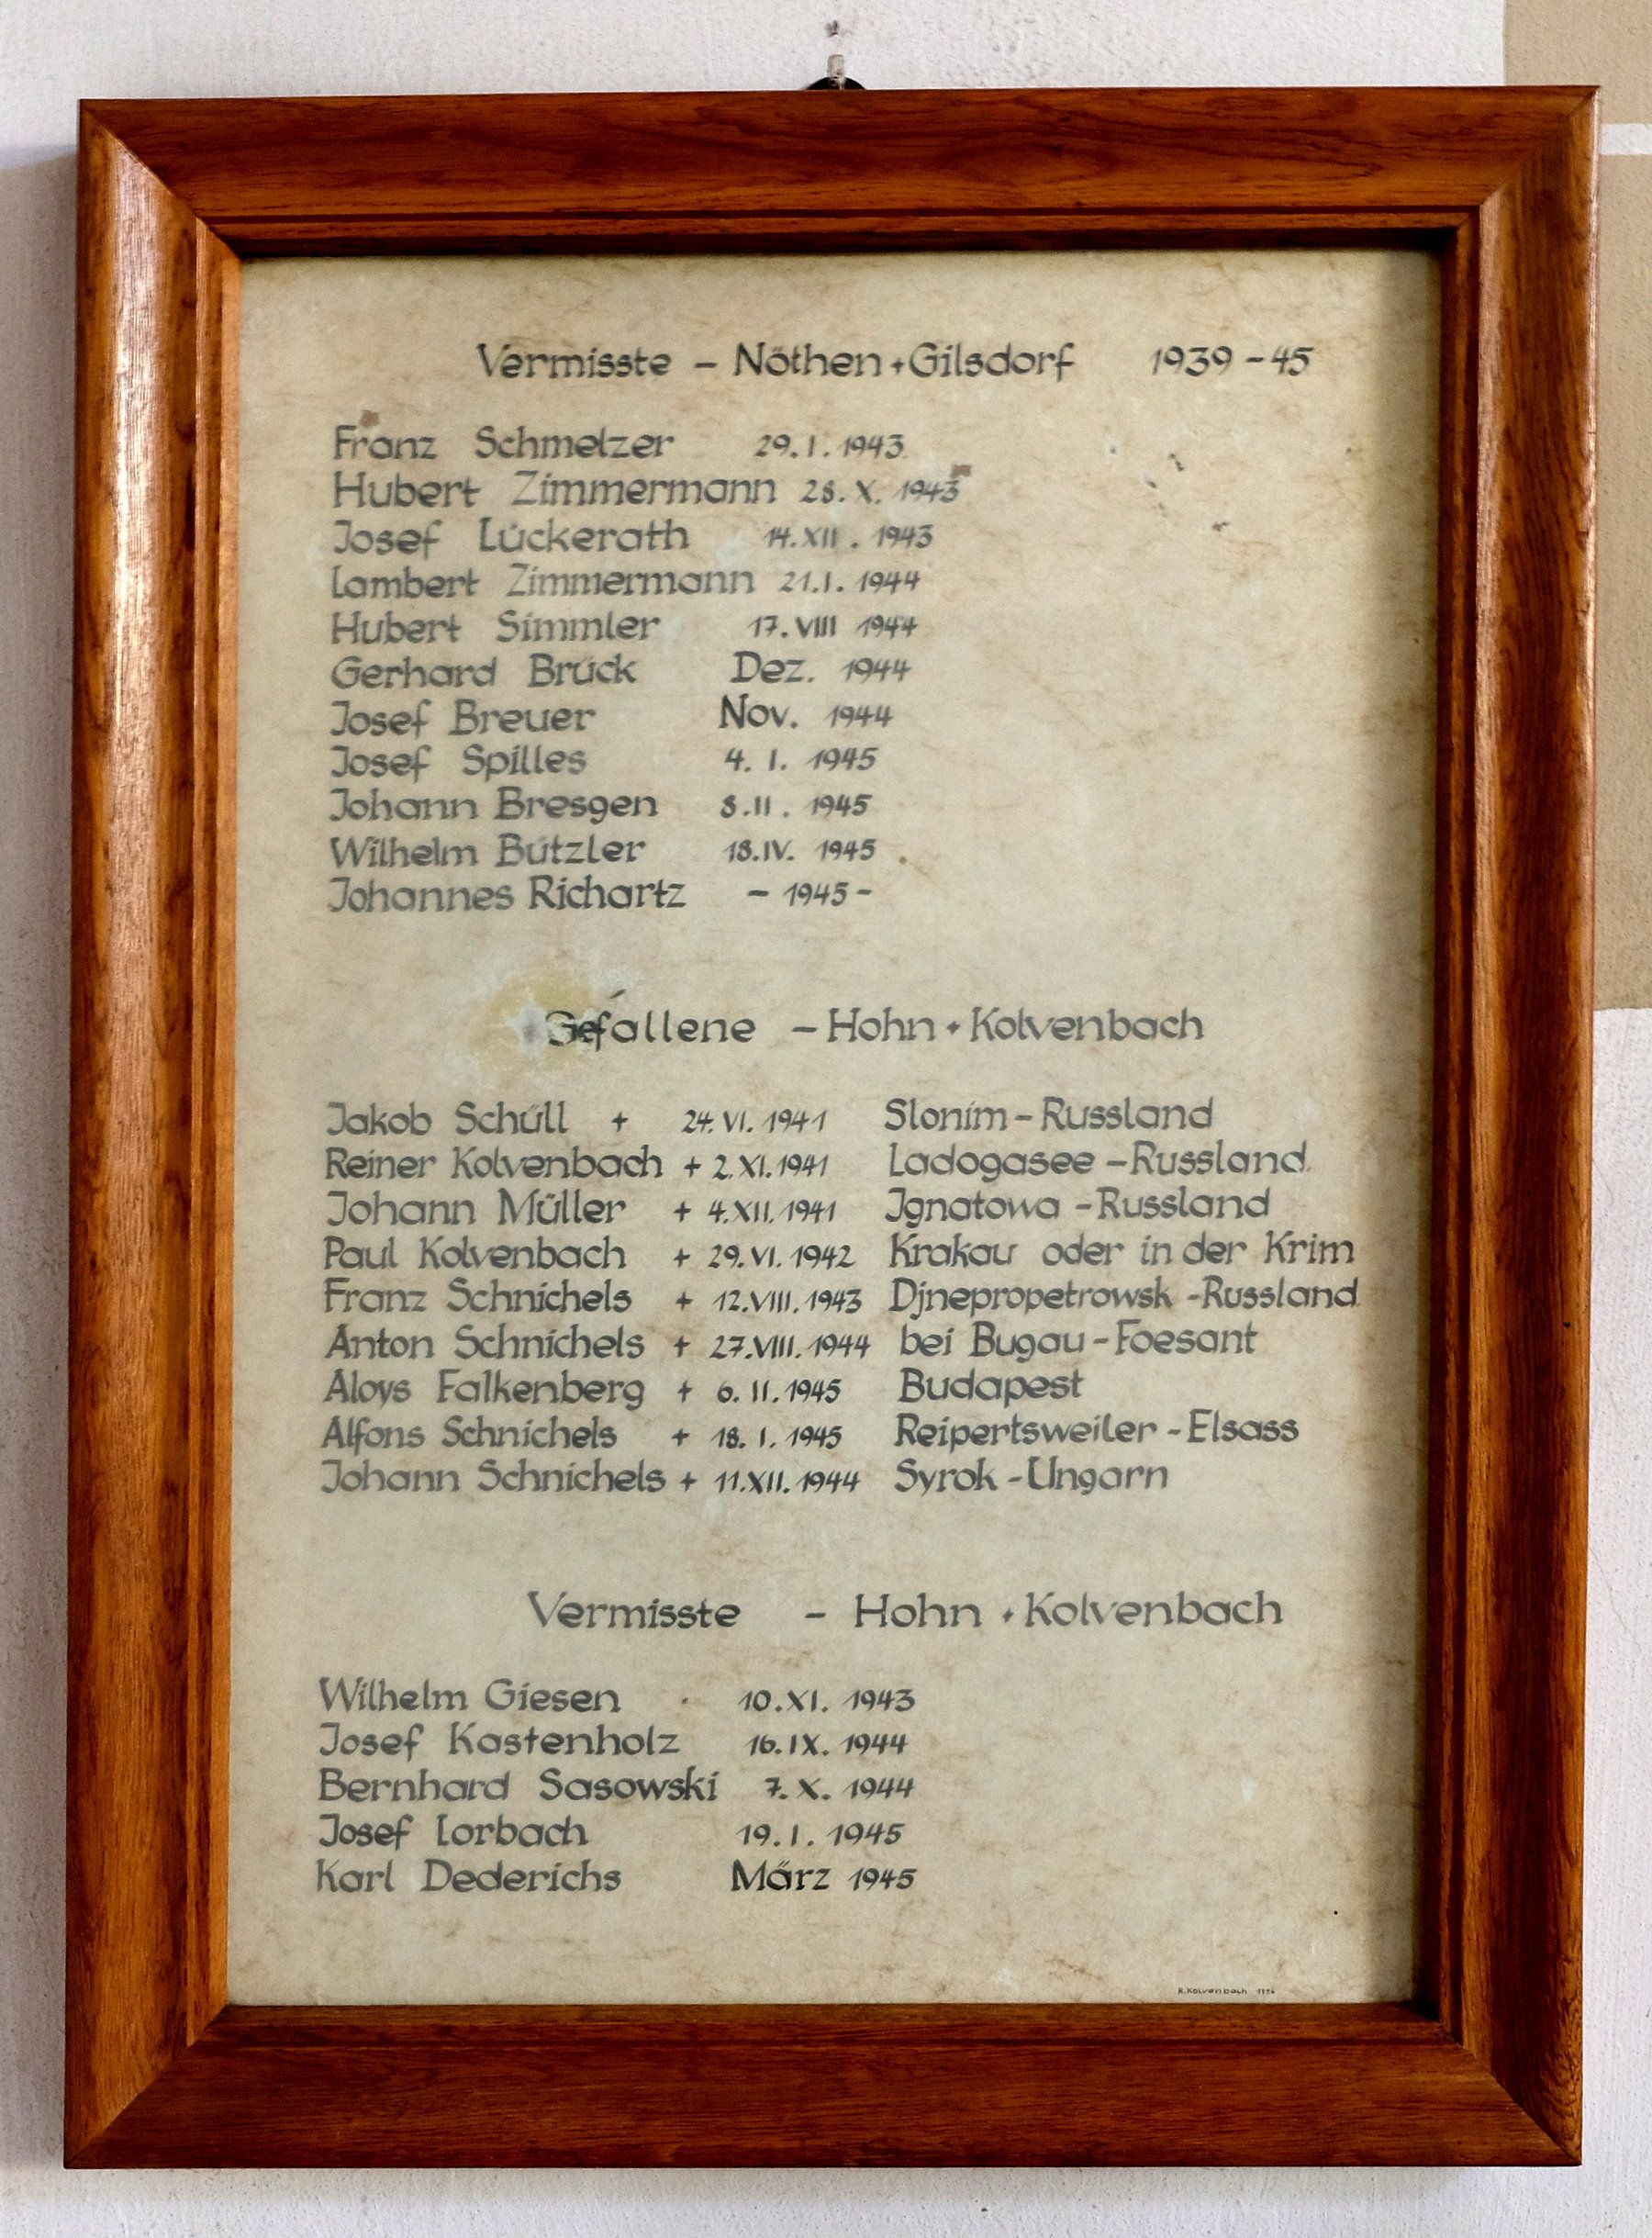 Vermisste – Nöthen + Gilsdorf 1939 – 45
Franz Schmelzer 29. I. 1943
Hubert Zimmermann 28. X. 1943
Josef Lückerath 14. XII. 1943
Lambert Zimmermann 21. I. 1944
Hubert Simmler 17. VIII 1944
Gerhard Brück Dez. 1944
Josef Breuer Nov. 1944
Josef Spilles 4. I. 1945
Johann Bresgen 8. II. 1945
Wilhelm Bützler 18. IV. 1945
Johannes Richartz – 1945 –
Gefallene – Hohn + Kolvenbach
Jakob Schüll + 24. VI. 1941 Slonim – Russland
Reiner Kolvenbach + 2. XI. 1941 Ladogasee – Russland
Johann Müller + 4. XII. 1941 Jgnatowa – Russland
Paul Kolvenbach + 29. VI. 1942 Krakau oder in der Krim
Franz Schnichels + 12. VIII. 1943 Djnepropetrowsk – Russland
Anton Schnichels + 27. VIII. 1944 bei Bugau – Foesant
Aloys Falkenberg + 6. II. 1945 Budapest
Alfons Schnichels + 18. I. 1945 Reipertsweiler – Elsass
Johann Schnichels + 11. XII. 1944 Syrok – Ungarn
Vermisste – Hohn + Kolvenbach
Wilhelm Giesen 10. XI. 1943
Josef Kastenholz 16. IX. 1944
Bernhard Sasowski 7. X. 1944
Josef Lorbach 19. I. 1945
Karl Dederichs März 1945
R. Kolvenbach